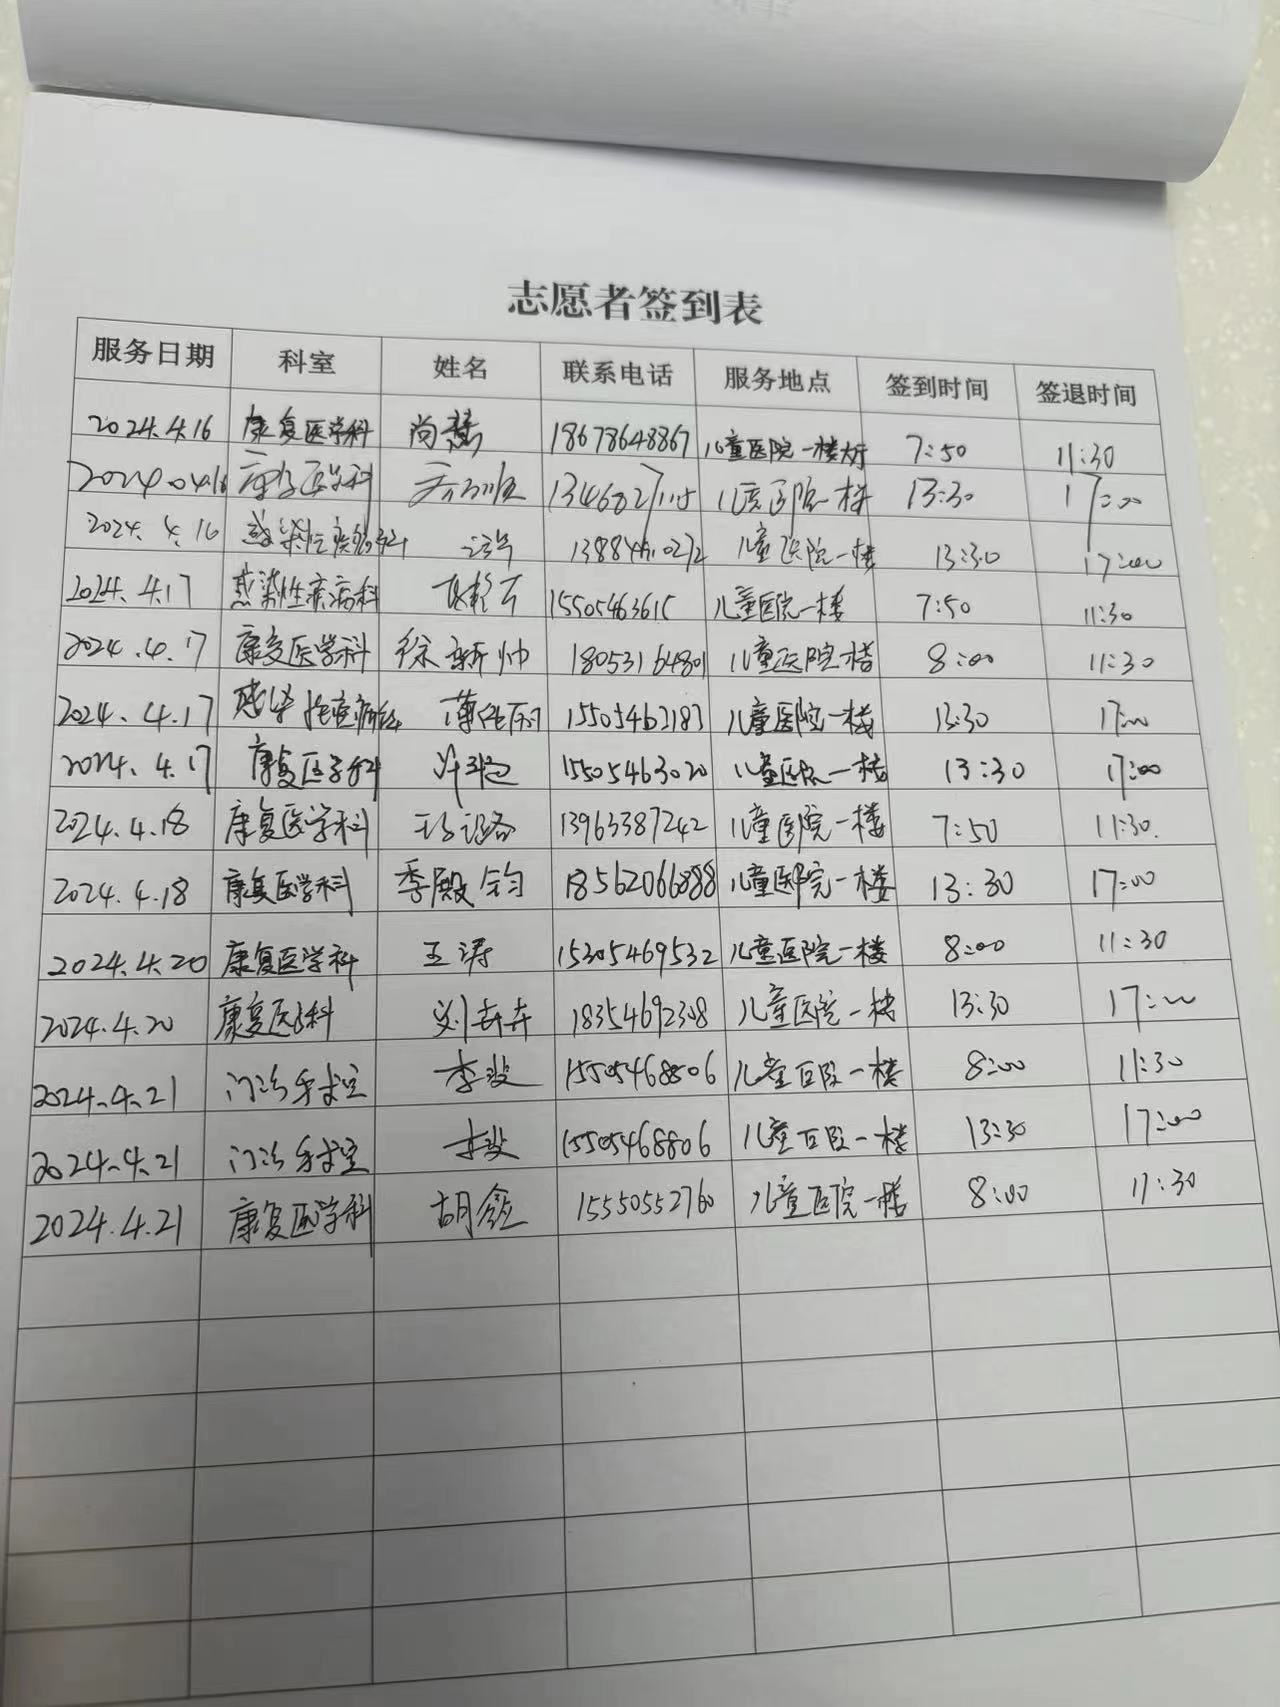 志愿者签到表
服务日期 科室 姓名 联系电话 服务地点 签到时间 签退时间
2024.4.16 康复医学科 尚慧 18678648867 儿童医院一楼大厅 7:50 11:30
2024.04.16 康复医学科 儿童医院一楼 13:30 17:00
2024.4.16 感染性疾病科 儿童医院一楼 13:30 17:00
2024.4.17 感染性疾病科 15505463615 儿童医院一楼 7:50 11:30
2024.4.17 康复医学科 徐新帅 18053164801 儿童医院一楼 8:00 11:30
2024.4.17 感染性疾病科 15505462183 儿童医院一楼 13:30 17:00
2024.4.17 康复医学科 15505463020 儿童医院一楼 13:30 17:00
2024.4.18 康复医学科 13963387242 儿童医院一楼 7:50 11:30.
2024.4.18 康复医学科 季殿钧 18562066888 儿童医院一楼 13:30 17:00
2024.4.20 康复医学科 王涛 15305469532 儿童医院一楼 8:00 11:30
2024.4.20 康复医学科 刘卉卉 18354692308 儿童医院一楼 13:30 17:00
2024.4.21 门诊手术室 李斐 15505468806 儿童医院一楼 8:00 11:30
2024.4.21 门诊手术室 李斐 15505468806 儿童医院一楼 13:30 17:00
2024.4.21 康复医学科 胡鑫 15550552760 儿童医院一楼 8:00 11:30